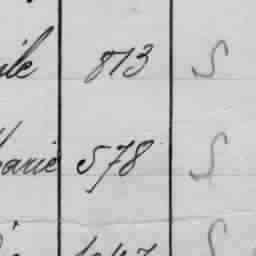 ile 813 S
arie 578 S